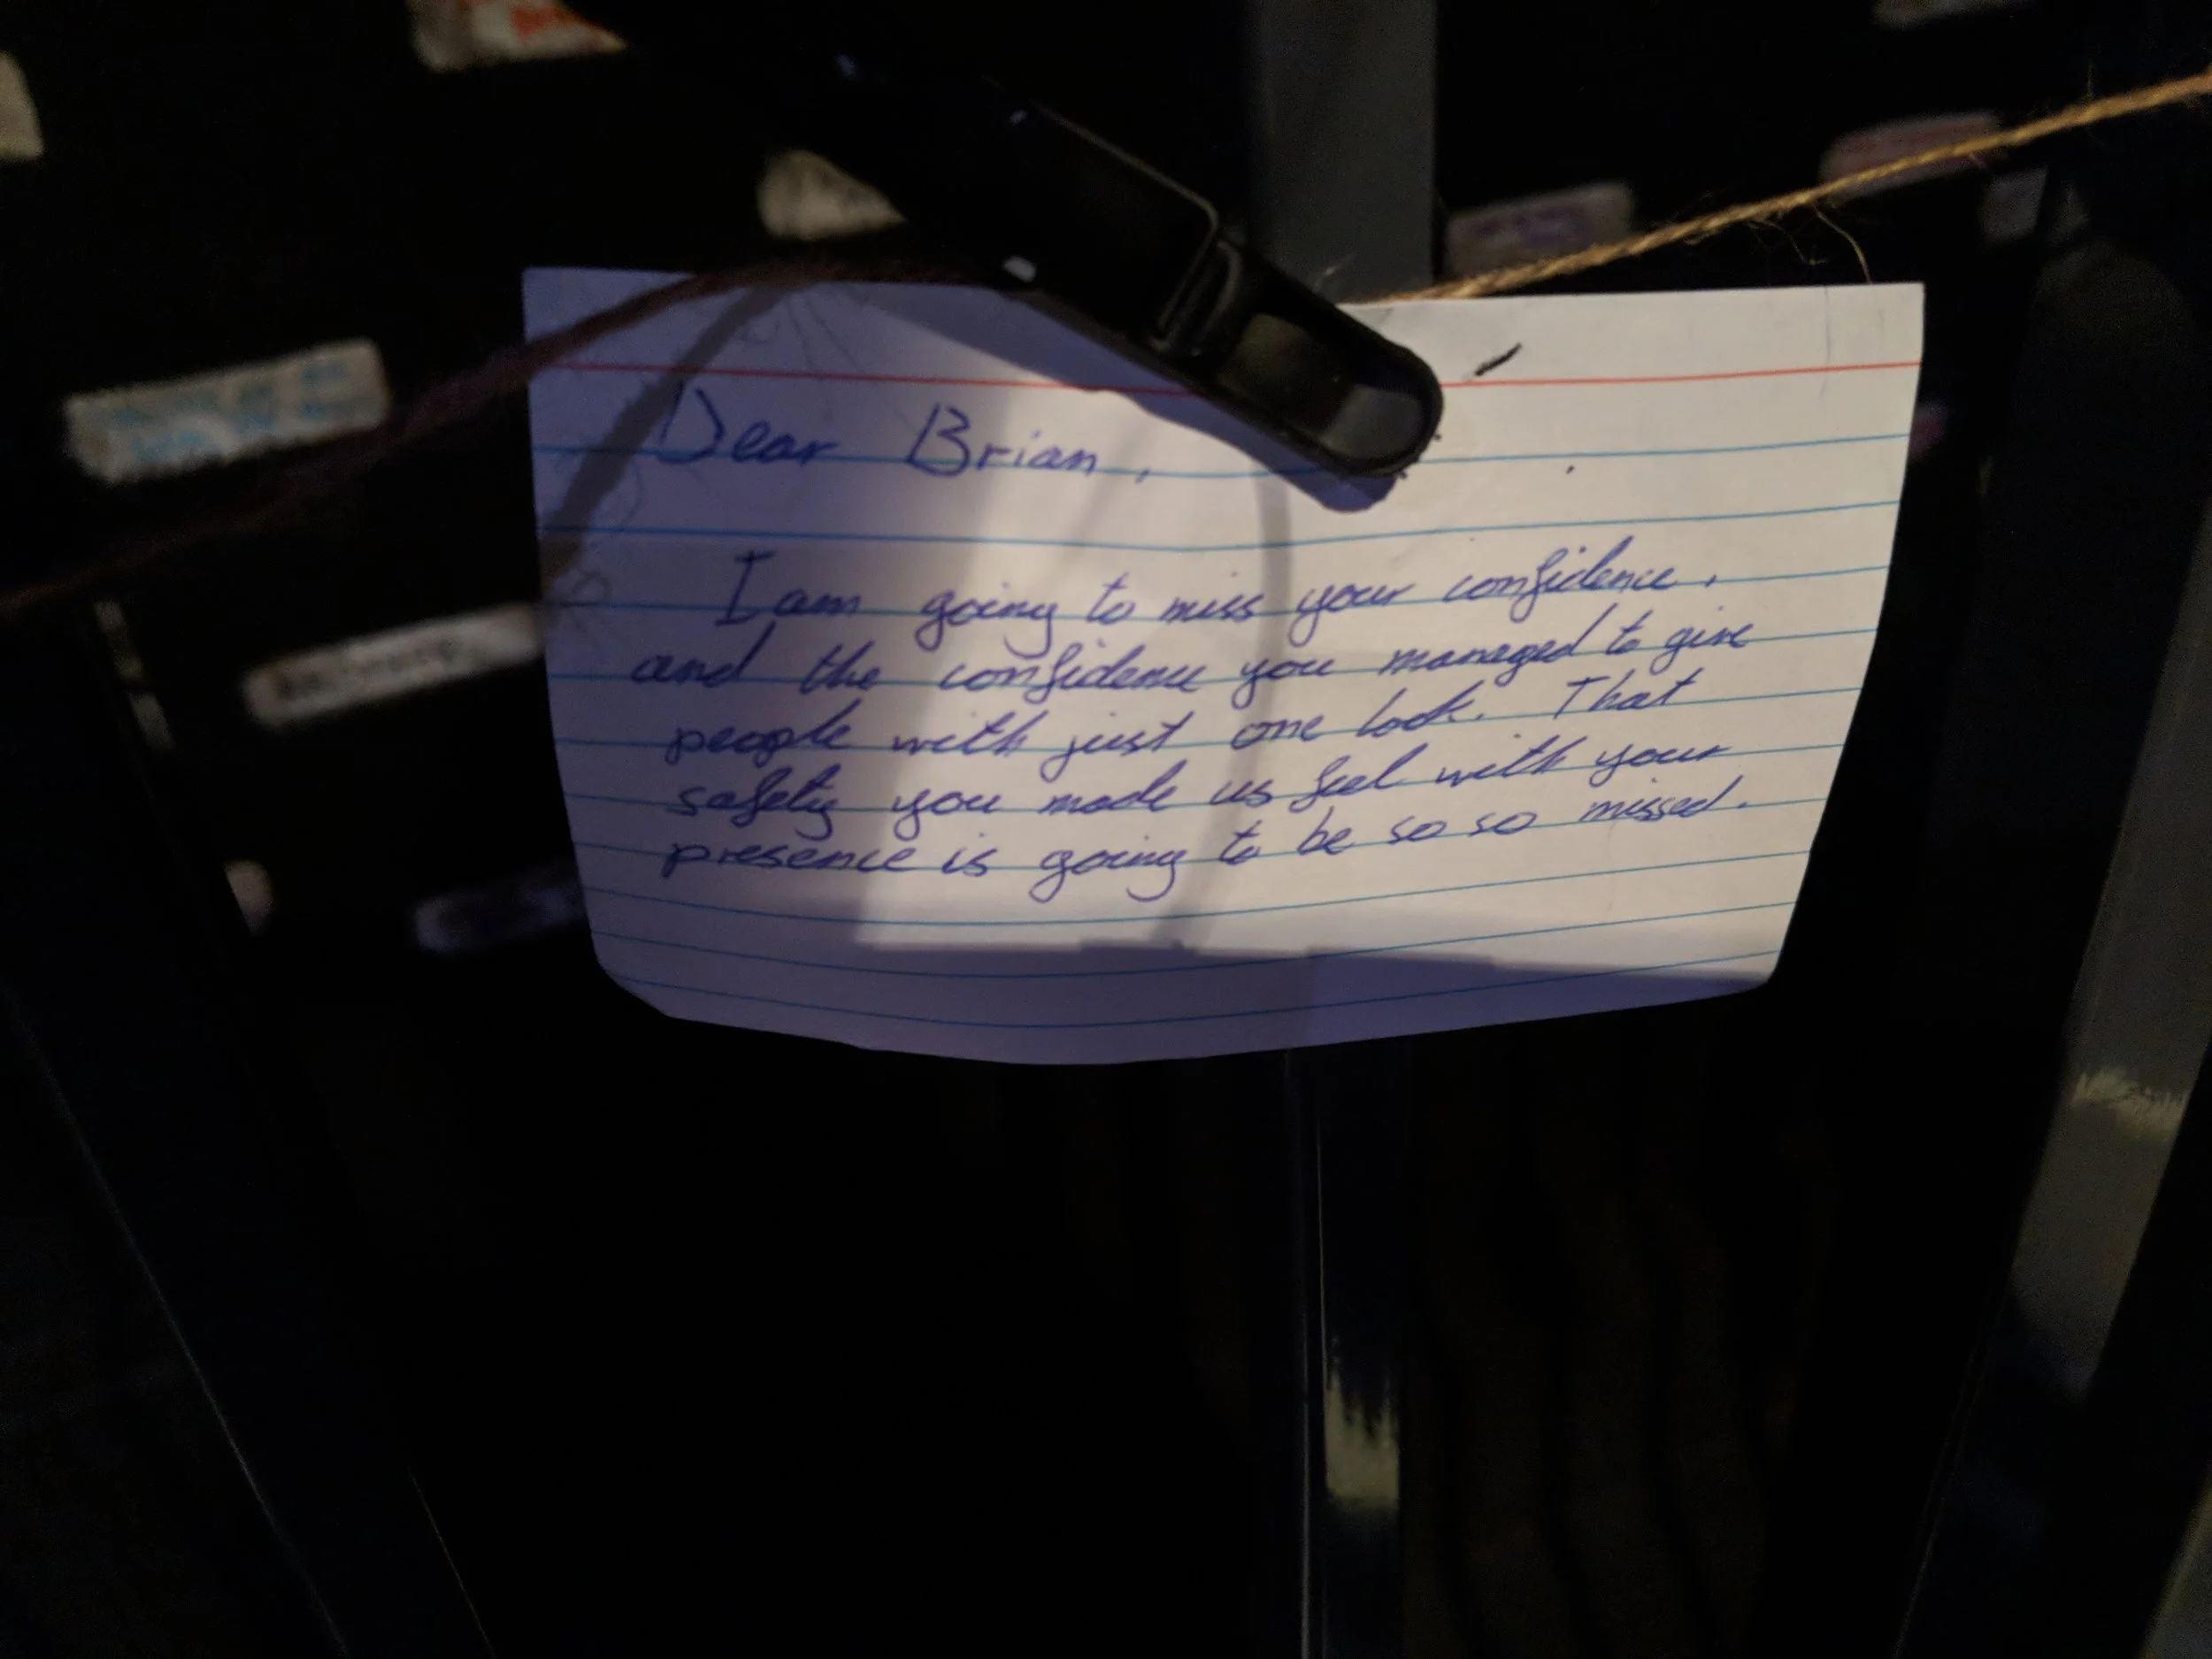 Dear Brian,
I am going to miss your confidence,
and the confidence you managed to give
people with just one look. That
safety you made us feel with your
presence is going to be so so missed.